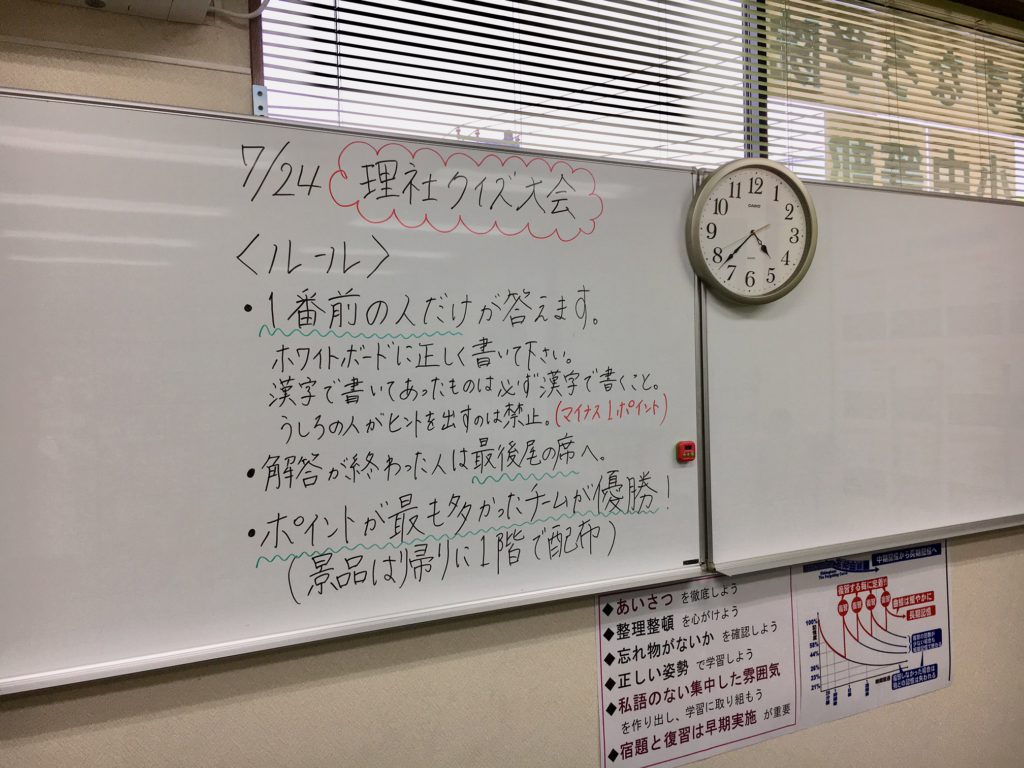 7/24 理社クイズ大会
<ルール>
・1番前の人だけが答えます。
ホワイトボードに正しく書いて下さい。
漢字で書いてあったものは必ず漢字で書くこと。
うしろの人がヒントを出すのは禁止。(マイナス1ポイント)
・解答が終わった人は最後尾の席へ。
・ポイントが最も多かったチームが優勝!
(景品は帰りに1階で配布)
12
1
2
3
4
5
6
7
8
9
10
11
CASIO
◆あいさつ を徹底しよう
◆整理整頓 を心がけよう
◆忘れ物がないか を確認しよう
◆正しい姿勢 で学習しよう
◆私語のない集中した雰囲気
を作り出し、学習に取り組もう
◆宿題と復習は早期実施 が重要
中期記憶から長期記憶へ
復習する毎に定着!!
長期記憶
100%
58%
44%
36%
26%
21%